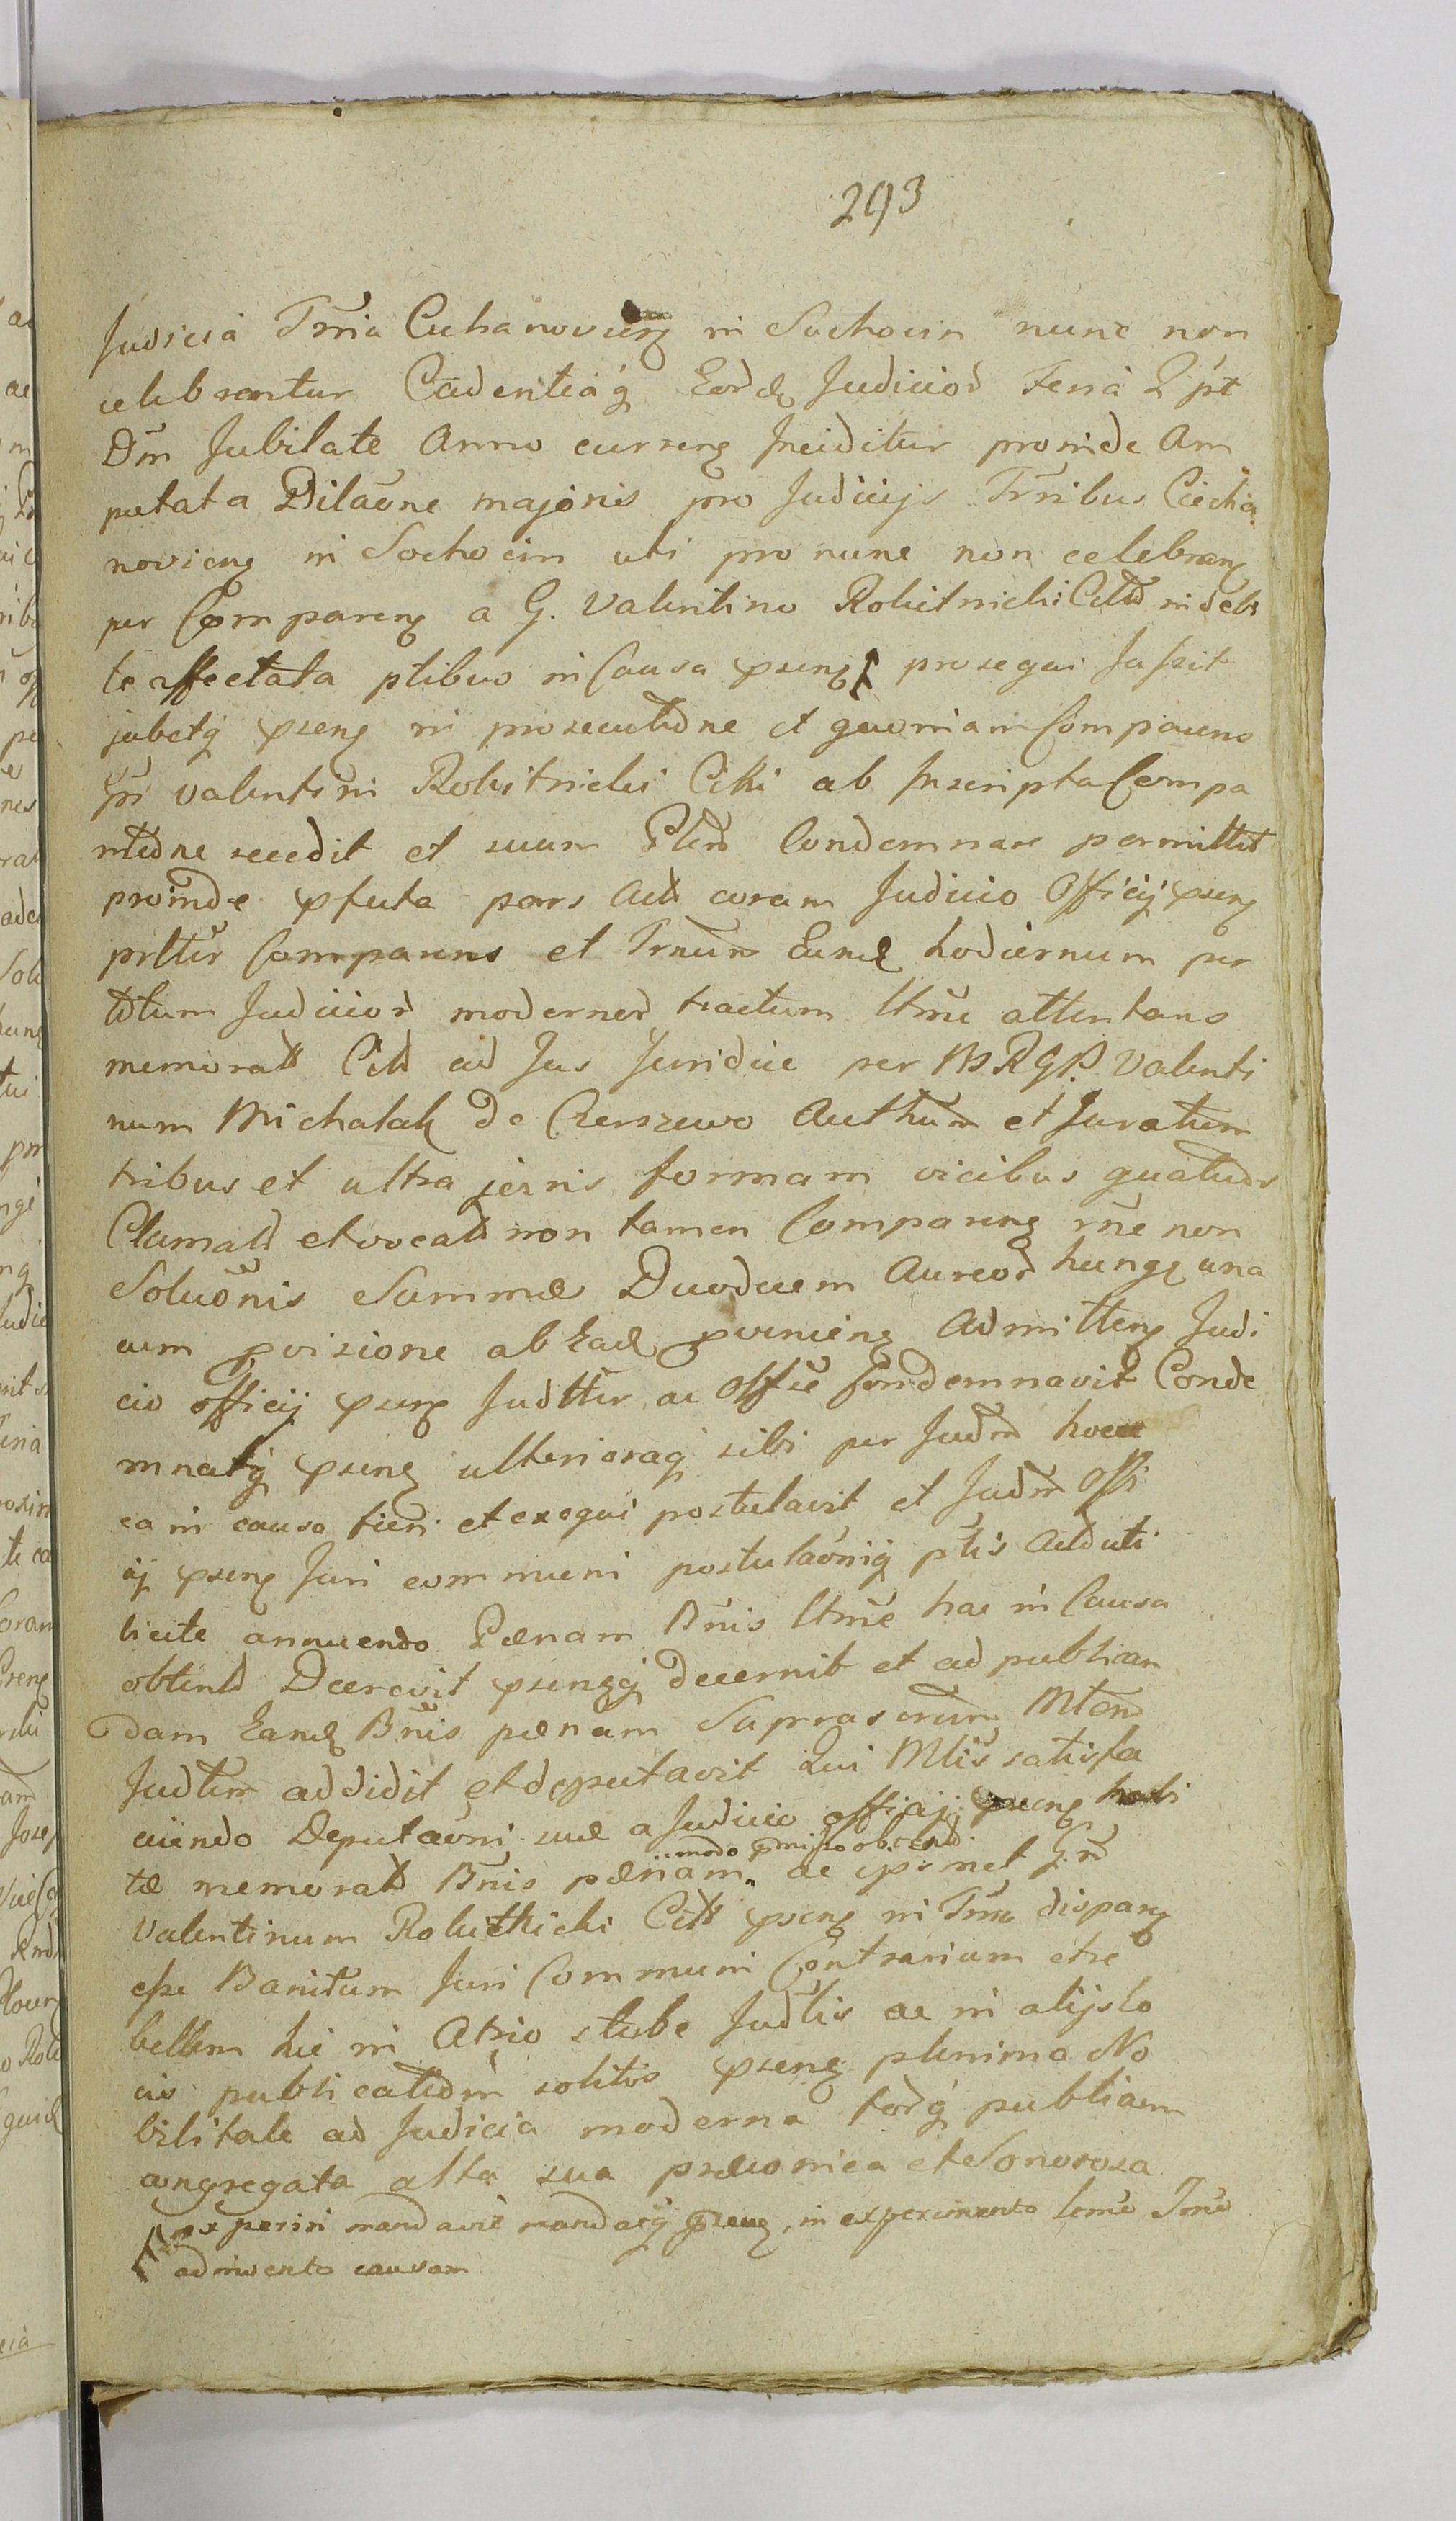 293
Judicia Trria Ciechanovien in Sochocin nunc non
celebrantur Cadentiaq Eorde Judicior Feria 2 pt
Dm Jubilate Anno curren Inciditur proinde Am
putata Dilaone majoris pro Judicijs Trribus Ciecha
novien in Sochocin uti pro nunc non celebran
per Comparen a G. Valentino Rokitnicki Citto indebi
te affectata ptibus in Causa psen prosequi Jussit
jubetq psen in prosecutione et quoniam Comparens
Valentini Rokitnicki Citti ab Inscripta Compa
ritione recedit et suum Condemnare permittit
proinde pfata pars Act coram Judicio Officij psen
prltter Comparens et Trnum Eund hodiernum per
totum Judicior modernor tractum ltme attentans
memorat Citt ad Jus Juridice per MRGP. Valenti
num Michalak de Czerszewo Authum et Juratum
tribus et ultra juris formam vicibus quatuor
Clamat et vocat non tamen Comparen rne non
Soluonis Summae Duodecem Aureor hung una
cum pvisione ab Ead pvenien Admitten Judi
cio officij psen Judtter ac offse Condemnavit Conde
mnatq psen ulterioraq sibi per Judm hocce
ea in causa fieri et exequi postulavit et Judm Offi
ij psen Juri communi postulaoniq ptis Act uti
licite annuendo Paenam Bnis ltme hac in Causa
obtent Decrevit psenqq decernit et ad publican
dam Eand Bnis paenam Suprascrum Mtem
Judtem addidit et deputavit Qui Mtis satisfa
ciendo Deputaoni suae a Judicio officij psen habi
modo pmisso obtent
tae memorat Bnis paenam ac ipsmet Gm
Valentinum Rokitnicki Citt psen in Trno dispar
esse Banitum Juri Communi Contrarium et re
bellem hic in Atrio stubae Judtis ac in alijs lo
cis publicationm solitis psen plenima No
bilitate ad Judicia moderna forq publicum
congregata alta sua praeconica et Sonorosa
experiri mandavit mandatq psen, in experimento lme Trne
adinvento causam